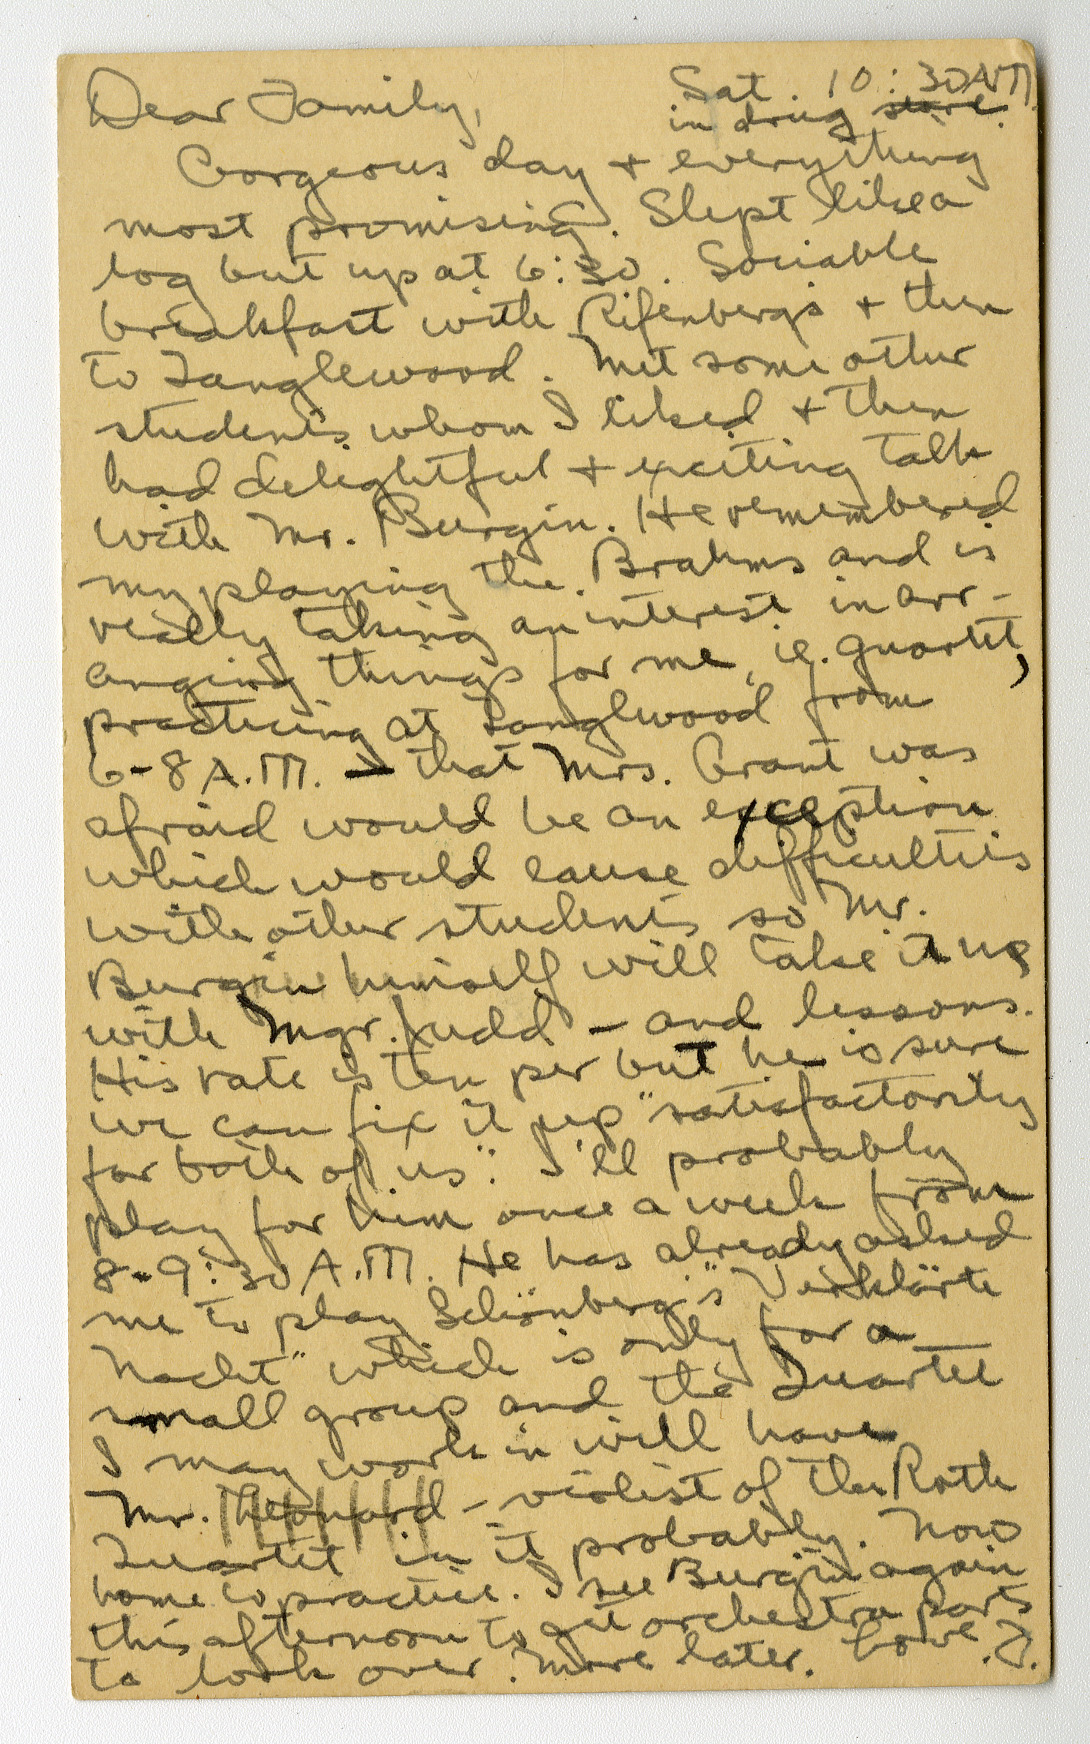 Sat. 10:30 A.M.
in drug store.
Dear Family,
Gorgeous day + everything
most promising. Slept like a
log but up at 6:30. Sociable
breakfast with Rifenbergs + then
to Tanglewood. Met some other
students whom I liked + then
had delightful + exciting talk
with Mr. Burgin. He remembered
my playing the Brahms and is
really taking an interest in arr-
anging things for me, ie. quartet,
practicing at Tanglewood from
6-8 A.M. — that Mrs. Grant was
afraid would be an exception
which would cause difficulties
with other students so Mr.
Burgin himself will take it up
with Mgr. Judd — and lessons.
His rate is ten per but he is sure
we can fix it up "satisfactorily
for both of us". I'll probably
play for him once a week from
8-9:30 A.M. He has already asked
me to play Schönberg's "Verklärte
Nacht" which is only for a
small group and the Quartet
I may work in will have
Mr. — violist of the Roth
Quartet in it probably. Now
home to practice. I see Burgin again
this afternoon to get orchestra parts
to look over. More later. Love J.